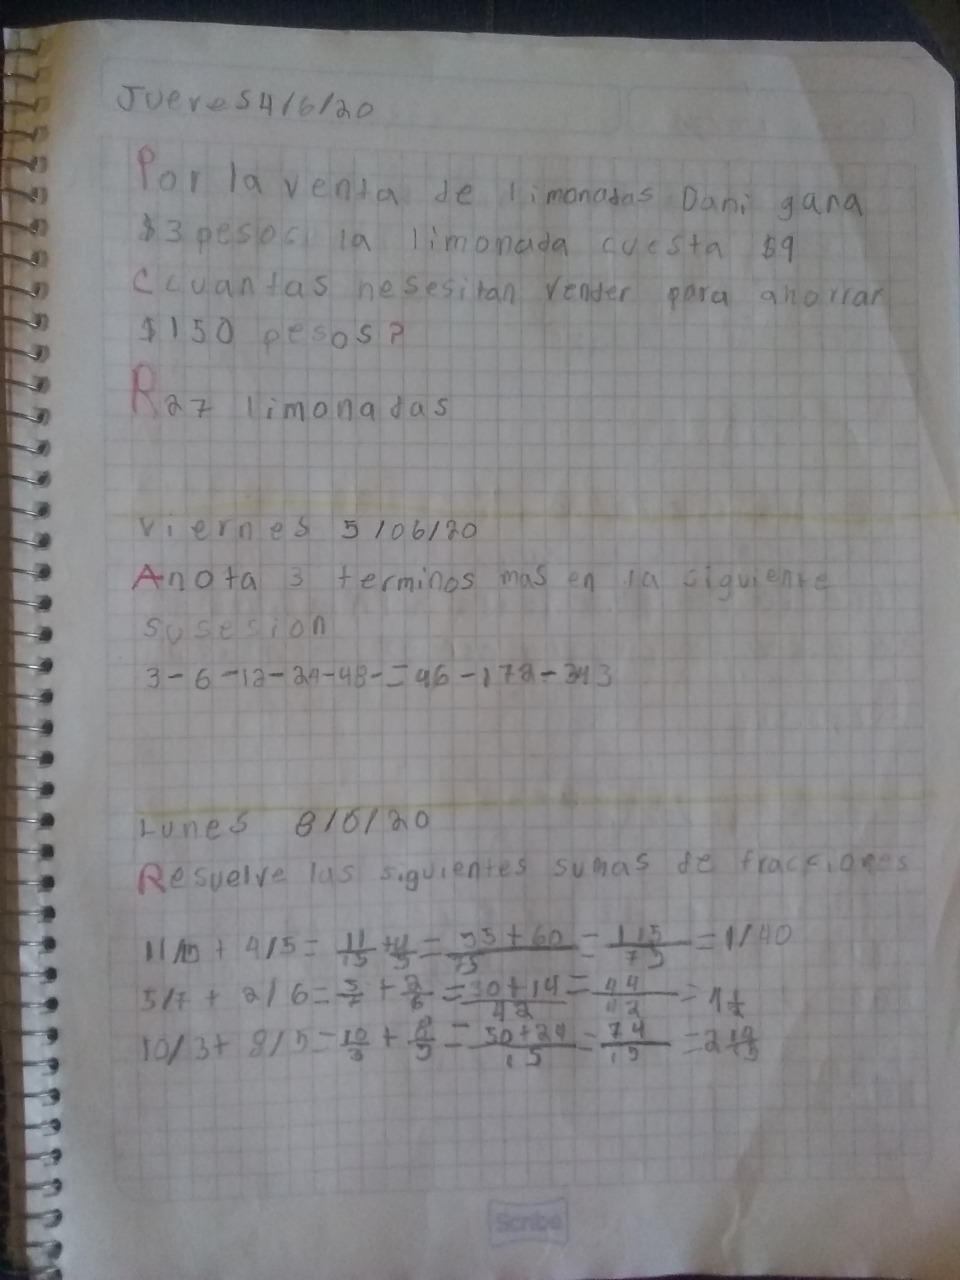 Jueves 4/6/20
Por la venta de limonadas Dani gana
$3 pesos si la limonada cuesta $9
Ccuantas nesesitan vender para ahorrar
$150 pesos?
R 27 limonadas
Viernes 5/06/20
Anota 3 terminos mas en la siguiente
susesion
3-6-12-24-48-=96-172-343
Lunes 8/6/20
Resuelve las siguientes sumas de fracciones
11/15 + 4/5 = 11/15 + 4/5 = 55+60/75 = 115/75 = 1/40
5/7 + 2/6 = 5/7 + 2/6 = 30+14/42 = 44/42 =
10/3 + 8/5 = 10/3 + 8/5 = 50+24/15 = 74/15 =
Scribe